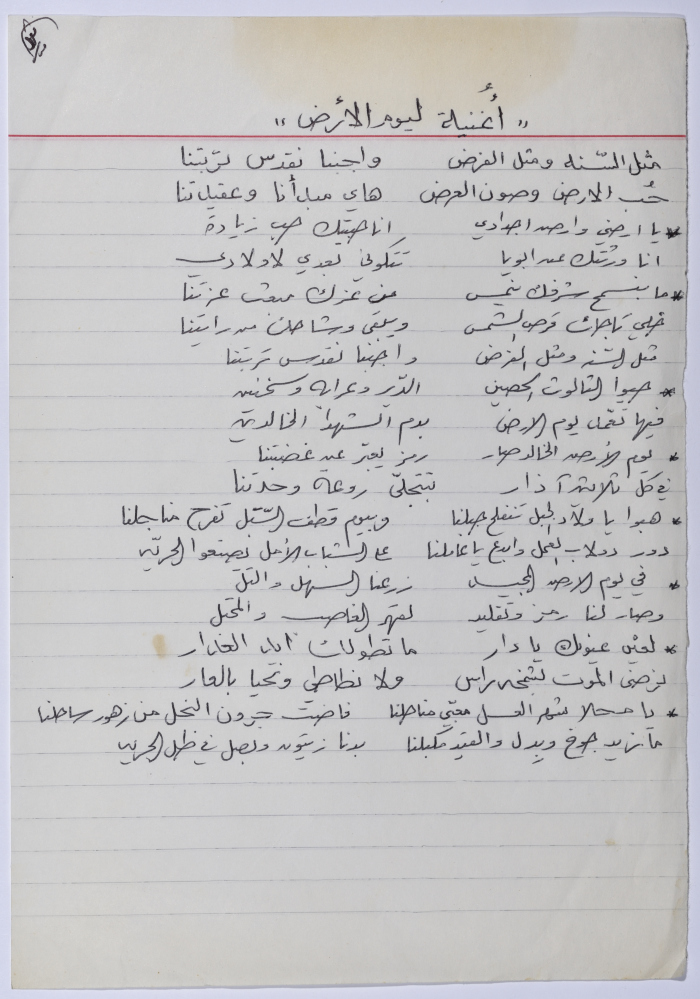 " أُغنية ليوم الأرض "
مثل السّنه ومثل الفرض واجبنا نقدس تربتنا
حُب الارض وصون العرض هاي مبدأنا وعقيدتنا
* يا ارضي وارض اجدادي انا حبيتك حب زيادة
انا ورثتك عن ابويا تتكوني بعدي لاولادي
* ما بنسمح شرفك ينمس من عزك عزتنا
خلي تاجك قرص الشمس ويبقى وشاحك من رايتنا
مثل السّنه ومثل الفرض واجبنا نقدس تربتنا
* حيوا الثالوث الحصين الدير وعرابه وسخنين
فيها تعمّد يوم الارض بدم الشهدا الخالدين
* يوم الأرض الخالد صار رمز يعبّر عن غضبتنا
في كل ثلاثين آذار تتجلّى روعة وحدتنا
* هبوا يا ولاد الجبل تنفلح جبلنا وبيوم قطف السّبل تفرح مناجلنا
دور دولاب العمل وابدع يا عاملنا ع الشباب الأمل يصنعوا الحريّه
* في يوم الارض المجيد زرعنا السهل والتلّ
وصار لنا رمز وتقليد لقهر الغاصب والمحتل
* لعين عيونك يا دار ما تطولك ايد الغدار
نرضى الموت بشمخة راس ولا نطاطي ونحيا بالعار
* يا محلا شهر العسل مناحلنا فاضت جرون النحل من زهور ساحلنا
ما نريد جوخ وبدل والقيد مكبلنا بدنا زيتون وبصل في ظل الحريه